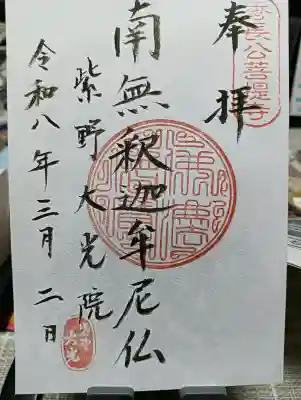 奉拝
秀長公菩提寺
南無釈迦牟尼仏
紫野大光院
令和八年三月二日